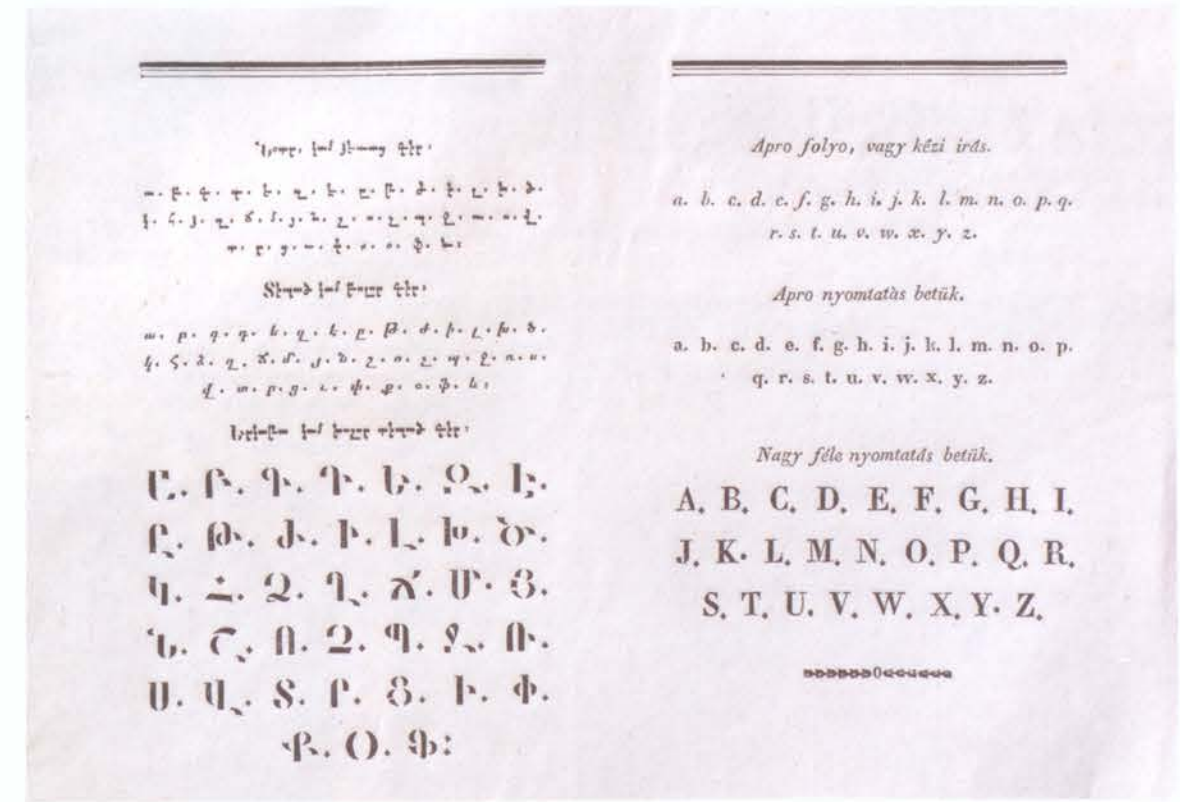 կամ գիր
ա. բ. գ. դ. ե. զ. է. ը. թ. ժ. ի. լ. խ. ծ.
կ. հ. ձ. ղ. ճ. մ. յ. ն. շ. ո. չ. պ. ջ. ռ. ս. վ.
տ. ր. ց. ւ. փ. ք. օ. ֆ. և:
կամ գիր
ա. բ. գ. դ. ե. զ. է. ը. թ. ժ. ի. լ. խ. ծ.
կ. հ. ձ. ղ. ճ. մ. յ. ն. շ. ո. չ. պ. ջ. ռ. ս.
վ. տ. ր. ց. ւ. փ. ք. օ. ֆ. և:
կամ գիր
Ա. Բ. Գ. Դ. Ե. Զ. Է.
Ը. Թ. Ժ. Ի. Լ. Խ. Ծ.
Կ. Հ. Ձ. Ղ. Ճ. Մ. Յ.
Ն. Շ. Ո. Չ. Պ. Ջ. Ռ.
Ս. Վ. Տ. Ր. Ց. Ւ. Փ.
Ք. Օ. Ֆ:
Apro folyo, vagy kézi irás.
a. b. c. d. e. f. g. h. i. j. k. l. m. n. o. p. q.
r. s. t. u. v. w. x. y. z.
Apro nyomtatàs betük.
a. b. c. d. e. f. g. h. i. j. k. l. m. n. o. p.
q. r. s. t. u. v. w. x. y. z.
Nagy féle nyomtatás betük.
A. B. C. D. E. F. G. H. I.
J. K. L. M. N. O. P. Q. R.
S. T. U. V. W. X. Y. Z.